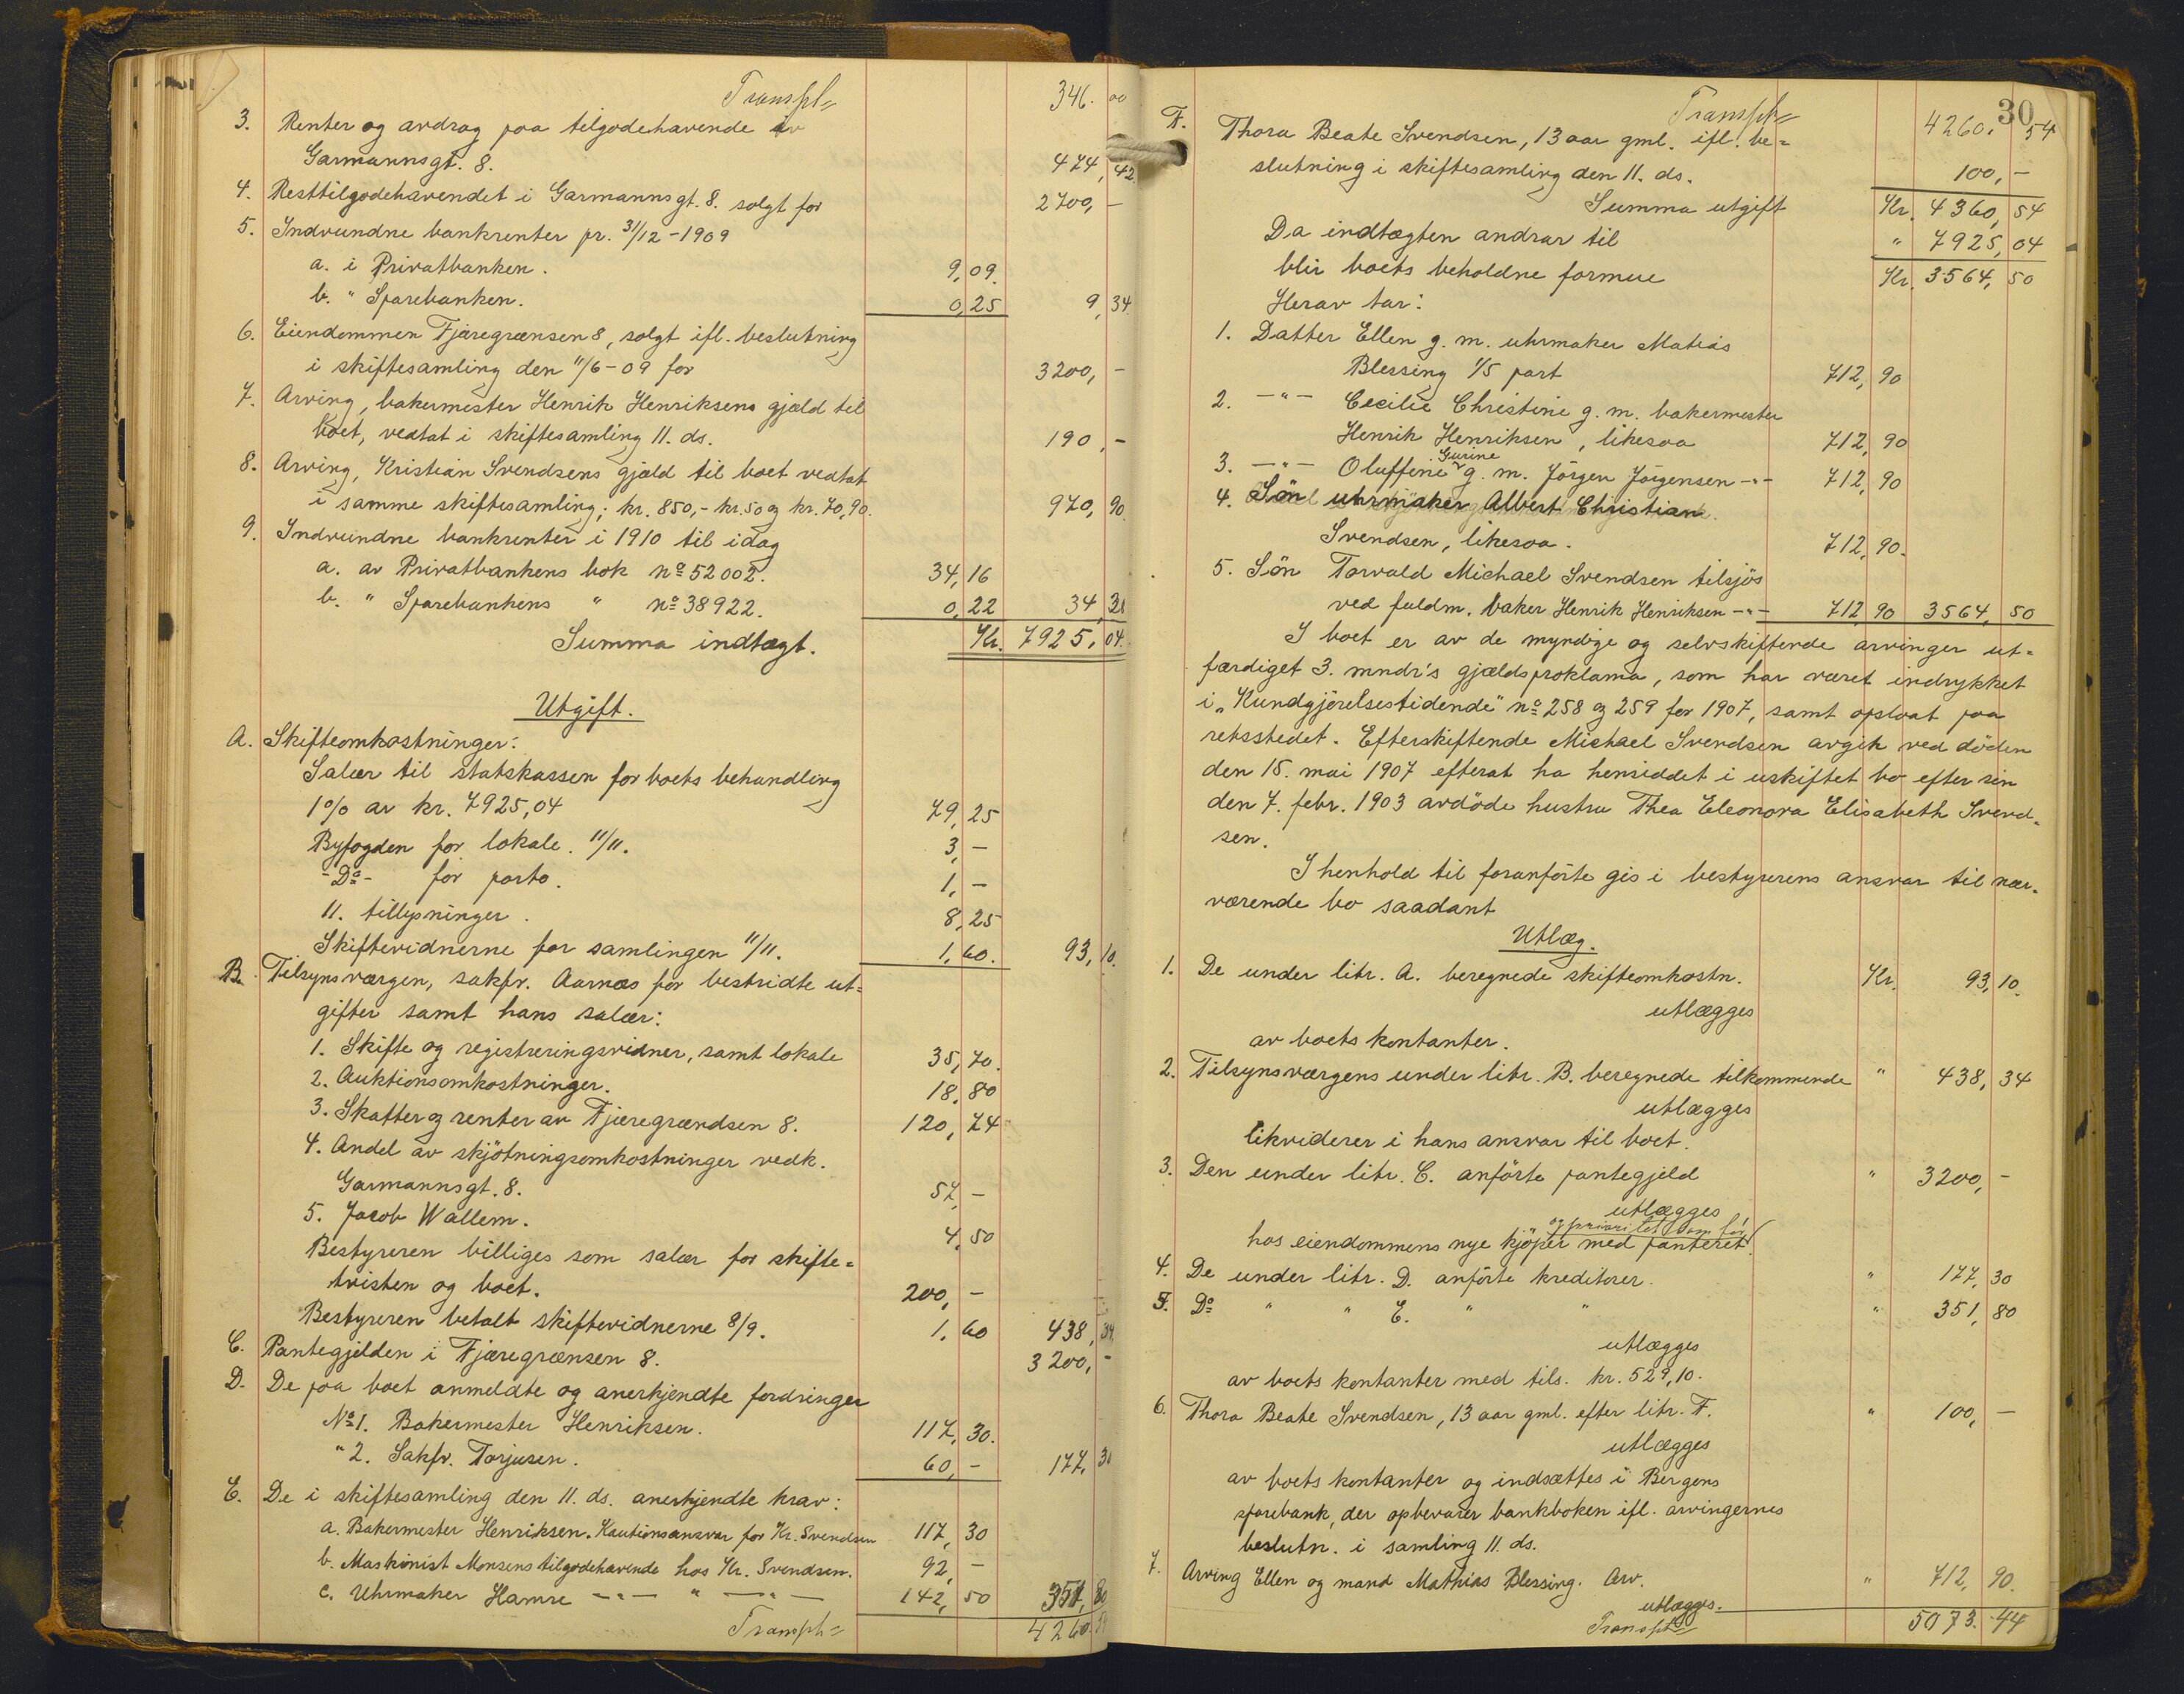 Transpt= 346. 00
3. Renter og avdrag paa tilgodehavende av
Garmannsgt. 8. 474, 42
4. Resttilgodehavendet i Garmannsgt. 8. solgt for 2700, -
5. Indvundne bankrenter pr. 31/12 - 1909
a. i Privatbanken. 9, 09.
b. " Sparebanken. 0, 25 9, 34.
6. Eiendommen Fjæregrænsen 8, solgt ifl. beslutning
i skiftesamling den 11/6 - 09 for 3200, -
7. Arving, bakermester Henrik Henriksens gjæld til
boet, vedtat i skiftesamling 11. ds. 190, -
8. Arving, Kristian Svendsens gjæld til boet vedtat
i samme skiftesamling; kr. 850,- kr. 50 og kr. 70,90. 970, 90.
9. Indvundne bankrenter i 1910 til idag
a. av Privatbankens bok No 52002. 34, 16
b. " Sparebankens " No 38922. 0, 22 34, 38
Summa indtægt. Kr. 7925, 04.
Utgift.
A. Skifteomkostninger:
Salær til statskassen for boets behandling
1% av kr. 7925,04 79, 25
Byfogden for lokale. 11/11. 3, -
- Do - for porto. 1, -
11. tillysninger. 8, 25
Skiftevidnerne for samlingen 11/11. 1, 60. 93, 10.
B. Tilsynsværgen, sakfr. Aarnæs for bestridte ut=
gifter samt hans salær:
1. Skifte og registreringsvidner, samt lokale 35, 70.
2. Auktionsomkostninger. 18, 80
3. Skatter og renter av Fjæregrændsen 8. 120, 74
4. Andel av skjøtningsomkostninger vedk.
Garmannsgt. 8. 57, -
5. Jacob Wallem. 4, 50
Bestyreren billiges som salær for skifte=
tvisten og boet. 200, -
Bestyreren betalt skiftevidnerne 8/9. 1, 60 438, 34.
C. Pantegjelden i Fjæregrænsen 8. 3200, -
D. De paa boet anmeldte og anerkjendte fordringer
No 1. Bakermester Henriksen. 117, 30.
" 2. Sakfr. Torjusen. 60, - 177, 30
E. De i skiftesamling den 11. ds. anerkjendte krav:
a. Bakermester Henriksen. Kautionsansvar for Kr. Svendsen 117, 30
b. Maskinist Monsens tilgodehavende hos Kr. Svendsen. 92, -
c. Uhrmaker Hamre - " - " - " - 142, 50 351, 80
Transpt= 4260. 54
30
Transpt= 4260. 54
F. Thora Beate Svendsen, 13 aar gml. ifl. be=
slutning i skiftesamling den 11. ds. 100, -
Summa utgift Kr. 4360, 54
Da indtægten andrar til " 7925, 04
blir boets beholdne formue Kr. 3564, 50
Herav tar:
1. Datter Ellen g. m. uhrmaker Matias
Blessing 1/5 part 712, 90
2. - " - Cecilie Christine g. m. bakermester
Henrik Henriksen, likesaa 712, 90
Gurine
3. - " - Oluffine g. m. Jörgen Jörgensen - " - 712, 90
4. Søn uhrmaker Albert Christian
Svendsen, likesaa. 712, 90.
5. Søn Torvald Michael Svendsen tilsjøs
ved fuldm. baker Henrik Henriksen - " - 712, 90 3564, 50
I boet er av de myndige og selvskiftende arvinger ut=
færdiget 3. mndr's gjældsproklama, som har været indrykket
i „Kundgjørelsestidende" No 258 og 259 for 1907, samt opslaat paa
retsstedet. Efterskiftende Michael Svendsen avgik ved døden
den 15. mai 1907 efterat ha hensiddet i uskiftet bo efter sin
den 7. febr. 1903 avdøde hustru Thea Eleonora Elisabeth Svend=
sen.
I henhold til foranførte gis i bestyrerens ansvar til nær=
værende bo saadant
Utlæg.
1. De under litr. A. beregnede skifteomkostn. Kr. 93, 10.
utlægges
av boets kontanter.
2. Tilsynsværgens under litr. B. beregnede tilkommende " 438, 34
utlægges
likviderer i hans ansvar til boet.
3. Den under litr. C. anførte pantegjeld " 3200, -
utlægges
og prioritet som før
hos eiendommens nye kjøper med panteret.
4. De under litr. D. anførte kreditorer. " 177, 30
5. Do " " E. " " " 351, 80
utlægges
av boets kontanter med tils. kr. 529,10.
6. Thora Beate Svendsen, 13 aar gml. efter litr. F. " 100, -
utlægges
av boets kontanter og indsættes i Bergens
sparebank, der opbevarer bankboken ifl. arvingernes
beslutn. i samling 11. ds.
7. Arving Ellen og mand Mathias Blessing. Arv. " 712, 90.
utlægges.
Transpt= 5073. 44